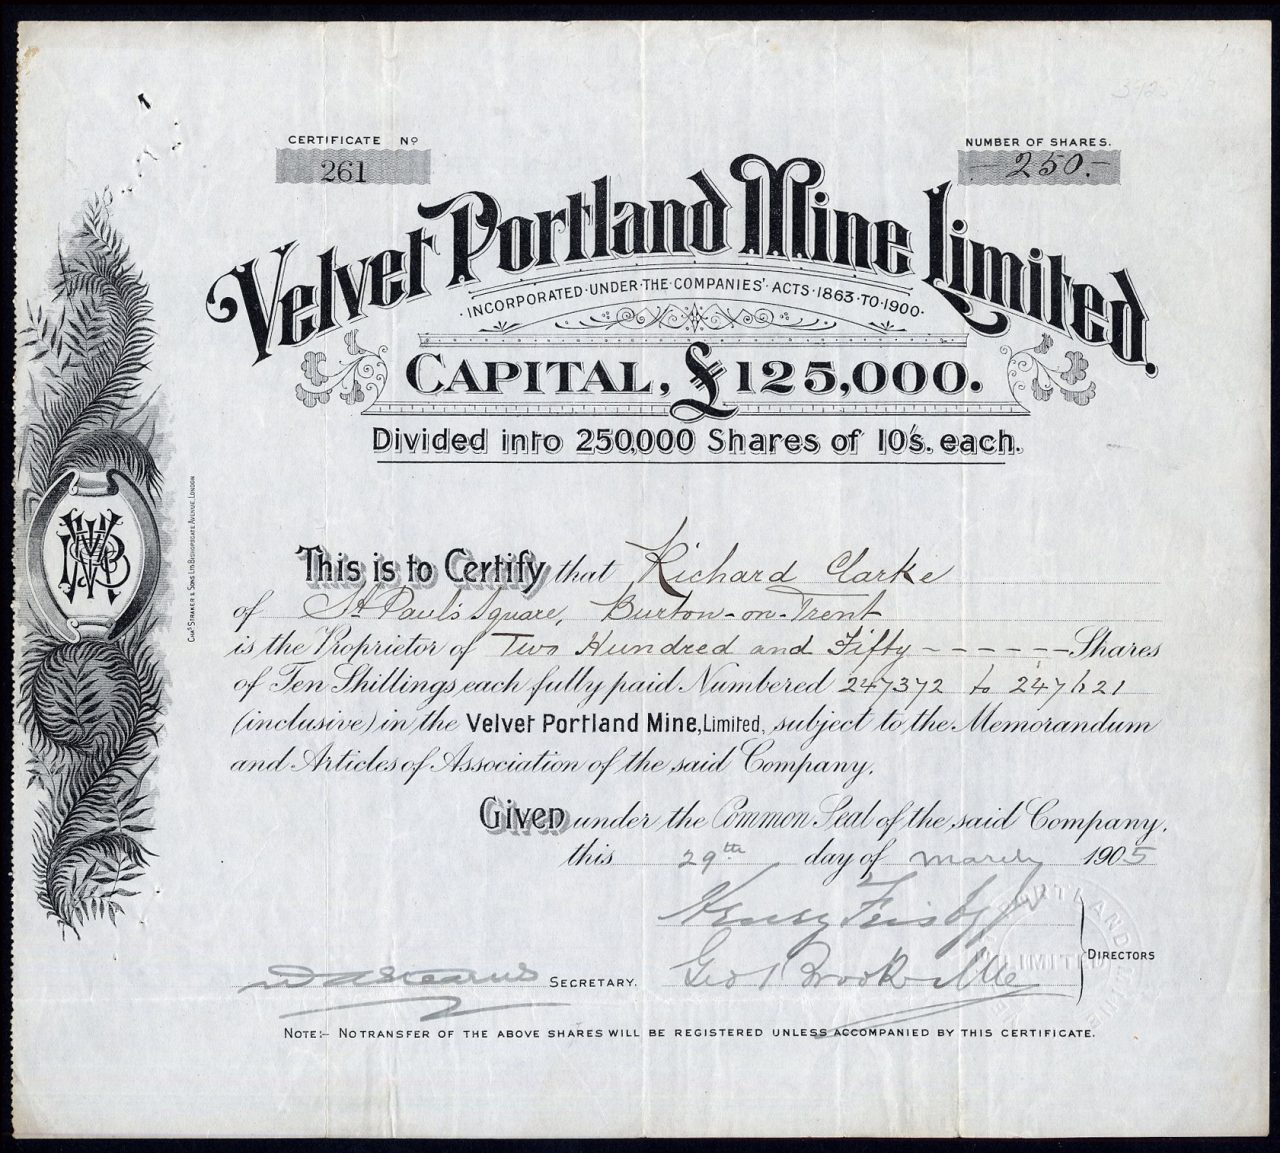 CERTIFICATE Nº
261
NUMBER OF SHARES.
-250.-
Velvet Portland Mine Limited.
INCORPORATED·UNDER·THE·COMPANIES'·ACTS·1863·TO·1900·
CAPITAL, £125,000.
Divided into 250,000 Shares of 10's. each.
CHAS STRAKER & SONS LTD BISHOPSGATE AVENUE, LONDON
This is to Certify that Richard Clarke
of St Paul's Square, Burton-on-Trent
is the Proprietor of Two Hundred and Fifty ------ Shares
of Ten Shillings each fully paid Numbered 247372 to 247621
(inclusive) in the Velvet Portland Mine, Limited, subject to the Memorandum
and Articles of Association of the said Company.
Given under the Common Seal of the said Company,
this 29th day of March 1905
Henry
Geo
DIRECTORS
SECRETARY.
PORTLAND MINE
LIMITED
NOTE:- NO TRANSFER OF THE ABOVE SHARES WILL BE REGISTERED UNLESS ACCOMPANIED BY THIS CERTIFICATE.